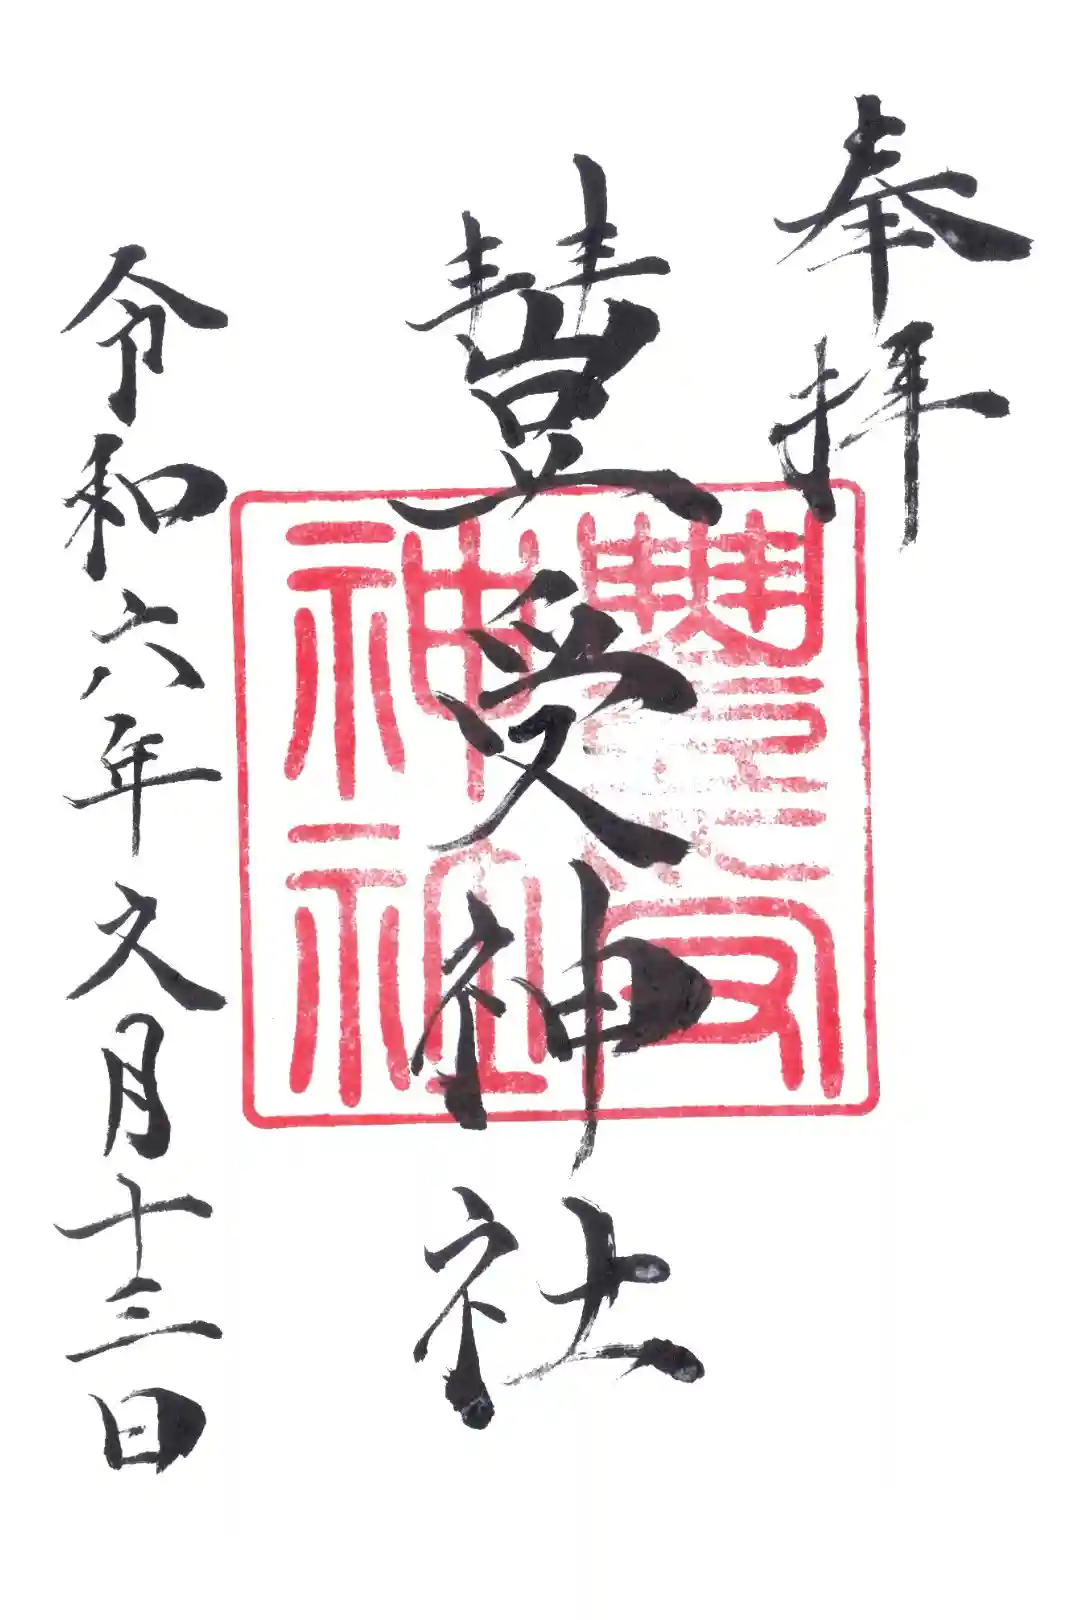 奉拝
豊受神社
豐受神社
令和六年文月十三日